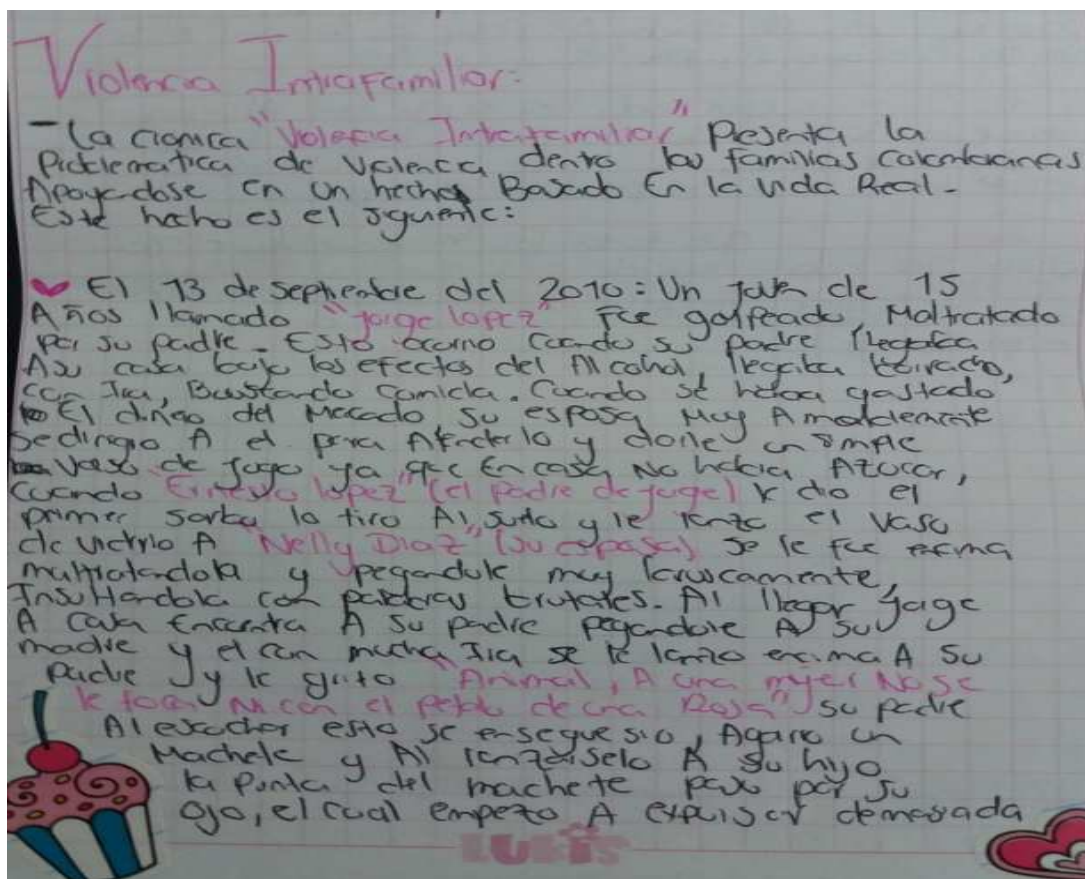 Violencia Intrafamiliar:
- La cronica "Violecia Intrafamiliar" Presenta la
Problematica de Violenca dentro las familias colombianas
Apoyandose en un hecho Basado En la vida Real-
Este hecho es el siguiente:
El 13 de septiembre del 2010: Un joven de 15
Años llamado "jorge lopez" Fue golpeado, Maltratado
por su padre. Esto ocurrio Cuando su padre llegaba
A su casa bajo los efectos del Alcohol, llegaba
Con Ira, Buscando comida. Cuando se habia gastado
El dinero del Mercado su esposa Muy Amablemente
se dirigio A el para Atenderlo y darle un simple
vaso de jugo ya que En casa No habia Azucar,
Cuando lopez" (el padre de jorge) le dio el
primer sorbo lo tiro Al suelo y le lanzo el vaso
de vidrio A "Nelly Diaz" (su esposa) se le fue encima
maltratandola y pegandole muy bruscamente,
Insultandola con palabras brutales. Al llegar jorge
A casa Encuentra A su padre pegandole A su
madre y el con mucha Ira se le lanzo encima A su
padre y le grito "Animal, A una mujer No se
le toca Ni con el petalo de una Rosa" su padre
Al escuchar esto se enseguesio, Agarro un
Machete y Al lanzarselo A su hijo
la Punta del machete paso por su
ojo, el cual empezo A expulsar demasiada